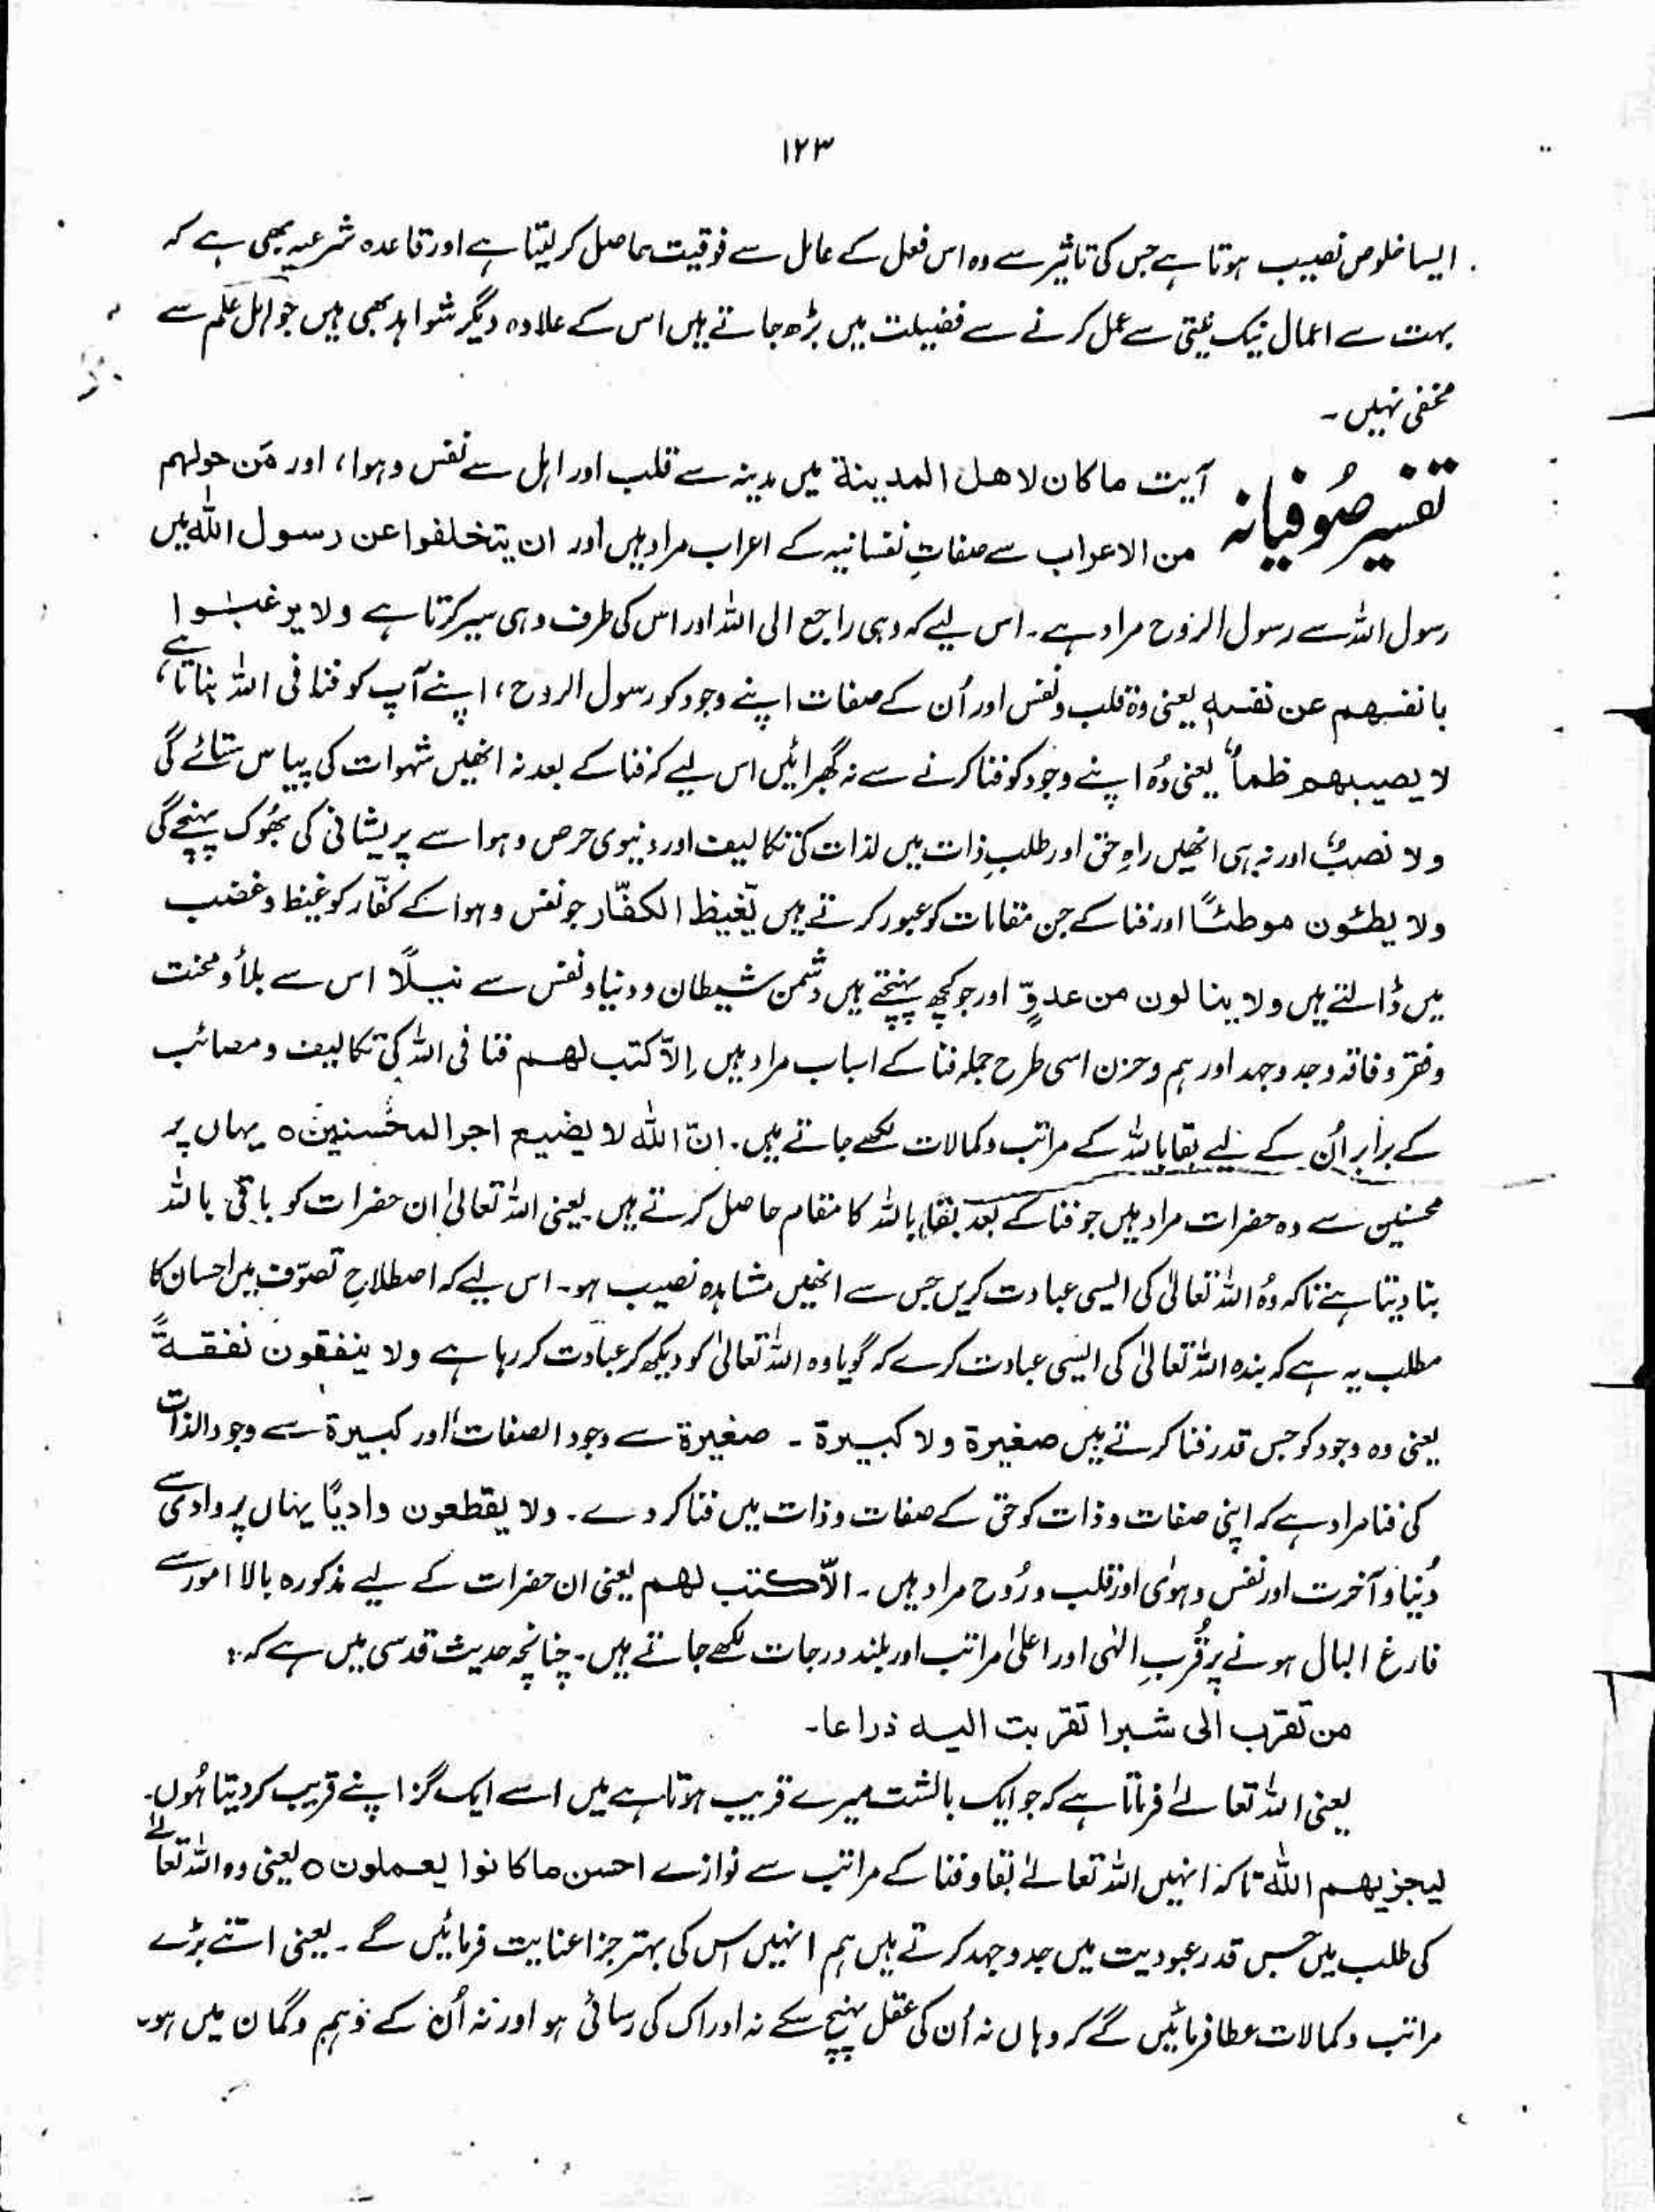 ۱۲۳
ایسا خلوص نصیب ہوتا ہے جس کی تاثیر سے وہ اس فعل کے عامل سے فوقیت حاصل کر لیتا ہے اور قاعدہ شرعیہ بھی ہے کہ
بہت سے اعمال نیک نیتی سے عمل کرنے سے فضیلت میں بڑھ جاتے ہیں اس کے علاوہ دیگر شواہد بھی ہیں جو اہل علم سے
مخفی نہیں۔
تفسیر صُوفیانہ
آیت ماکان لاھل المدینۃ میں مدینہ سے قلب اور اہل سے نفس و ہوا، اور مَن حولہم
من الاعراب سے صفاتِ نفسانیہ کے اعراب مراد ہیں اور ان یتخلفوا عن رسول اللہ میں
رسول اللہ سے رسول الروح مراد ہے۔ اس لیے کہ وہی راجع الی اللہ اور اس کی طرف وہی سیر کرتا ہے ولا یرغبوا
بانفسهم عن نفسہٖ یعنی وہ قلب و نفس اور اُن کے صفات اپنے وجود کو رسول الروح، اپنے آپ کو فنا فی اللہ بناتا ہے،
لا یصیبهم ظمأٌ یعنی وُہ اپنے وجود کو فنا کرنے سے نہ گھبرائیں اس لیے کہ فنا کے بعد نہ انھیں شہوات کی پیاس ستائے گی
ولا نصبٌ اور نہ ہی انھیں راہِ حق اور طلبِ ذات میں لذات کی تکالیف اور دنیوی حرص و ہوا سے پریشانی کی بھُوک پہنچے گی
ولا یطئون موطئًا اور فنا کے جن مقامات کو عبور کرتے ہیں یّغیظ الکفّار جو نفس و ہوا کے کفّار کو غیظ و غضب
میں ڈالتے ہیں ولا ینالون من عدوٍّ اور جو کچھ پہنچتے ہیں دشمن شیطان و دنیا و نفس سے نیلًا اس سے بلأ و محنت
و فقر و فاقہ و جد و جہد اور ہم و حزن اسی طرح جملہ فنا کے اسباب مراد ہیں اِلاّ کتب لهم فنا فی اللہ کی تکالیف و مصائب
کے برابر اُن کے لیے بقا باللہ کے مراتب و کمالات لکھے جاتے ہیں۔ انّ اللہ لا یضیع اجر المحسنین ٥ یہاں پر
محسنین سے وہ حضرات مراد ہیں جو فنا کے بعد بقا باللہ کا مقام حاصل کرتے ہیں یعنی اللہ تعالیٰ ان حضرات کو باقی باللہ
بنا دیتا ہے تاکہ وُہ اللہ تعالیٰ کی ایسی عبادت کریں جس سے انھیں مشاہدہ نصیب ہو۔ اس لیے کہ اصطلاحِ تصوّف میں احسان کا
مطلب یہ ہے کہ بندہ اللہ تعالیٰ کی ایسی عبادت کرے کہ گویا وہ اللہ تعالیٰ کو دیکھ کر عبادت کر رہا ہے ولا ینفقون نفقۃً
یعنی وہ وجود کو جس قدر فنا کرتے ہیں صغیرۃ ولا کبیرۃ ۔ صغیرۃ سے وجود الصفات اور کبیرۃ سے وجود الذات
کی فنا مراد ہے کہ اپنی صفات و ذات کو حق کے صفات و ذات میں فنا کر دے۔ ولا یقطعون وادیًا یہاں پر وادی سے
دُنیا و آخرت اور نفس و ہوٰی اور قلب و رُوح مراد ہیں۔ الاّ کتب لهم یعنی ان حضرات کے لیے مذکورہ بالا امور سے
فارغ البال ہونے پر قُربِ الٰہی اور اعلیٰ مراتب اور بلند درجات لکھے جاتے ہیں۔ چنانچہ حدیث قدسی میں ہے کہ:
من تقرب الی شبرا تقربت الیہ ذراعا۔
یعنی اللہ تعالےٰ فرماتا ہے کہ جو ایک بالشت میرے قریب ہوتا ہے میں اسے ایک گز اپنے قریب کر دیتا ہُوں۔
لیجزیهم اللہ تاکہ انہیں اللہ تعالےٰ بقا و فنا کے مراتب سے نوازے احسن ماکانوا یعملون ٥ یعنی وہ اللہ تعالےٰ
کی طلب میں جس قدر عبودیت میں جد و جہد کرتے ہیں ہم انہیں اس کی بہتر جزا عنایت فرمائیں گے۔ یعنی اتنے بڑے
مراتب و کمالات عطا فرمائیں گے کہ وہاں نہ اُن کی عقل پہنچ سکے نہ ادراک کی رسائی ہو اور نہ اُن کے وہم و گمان میں ہو۔